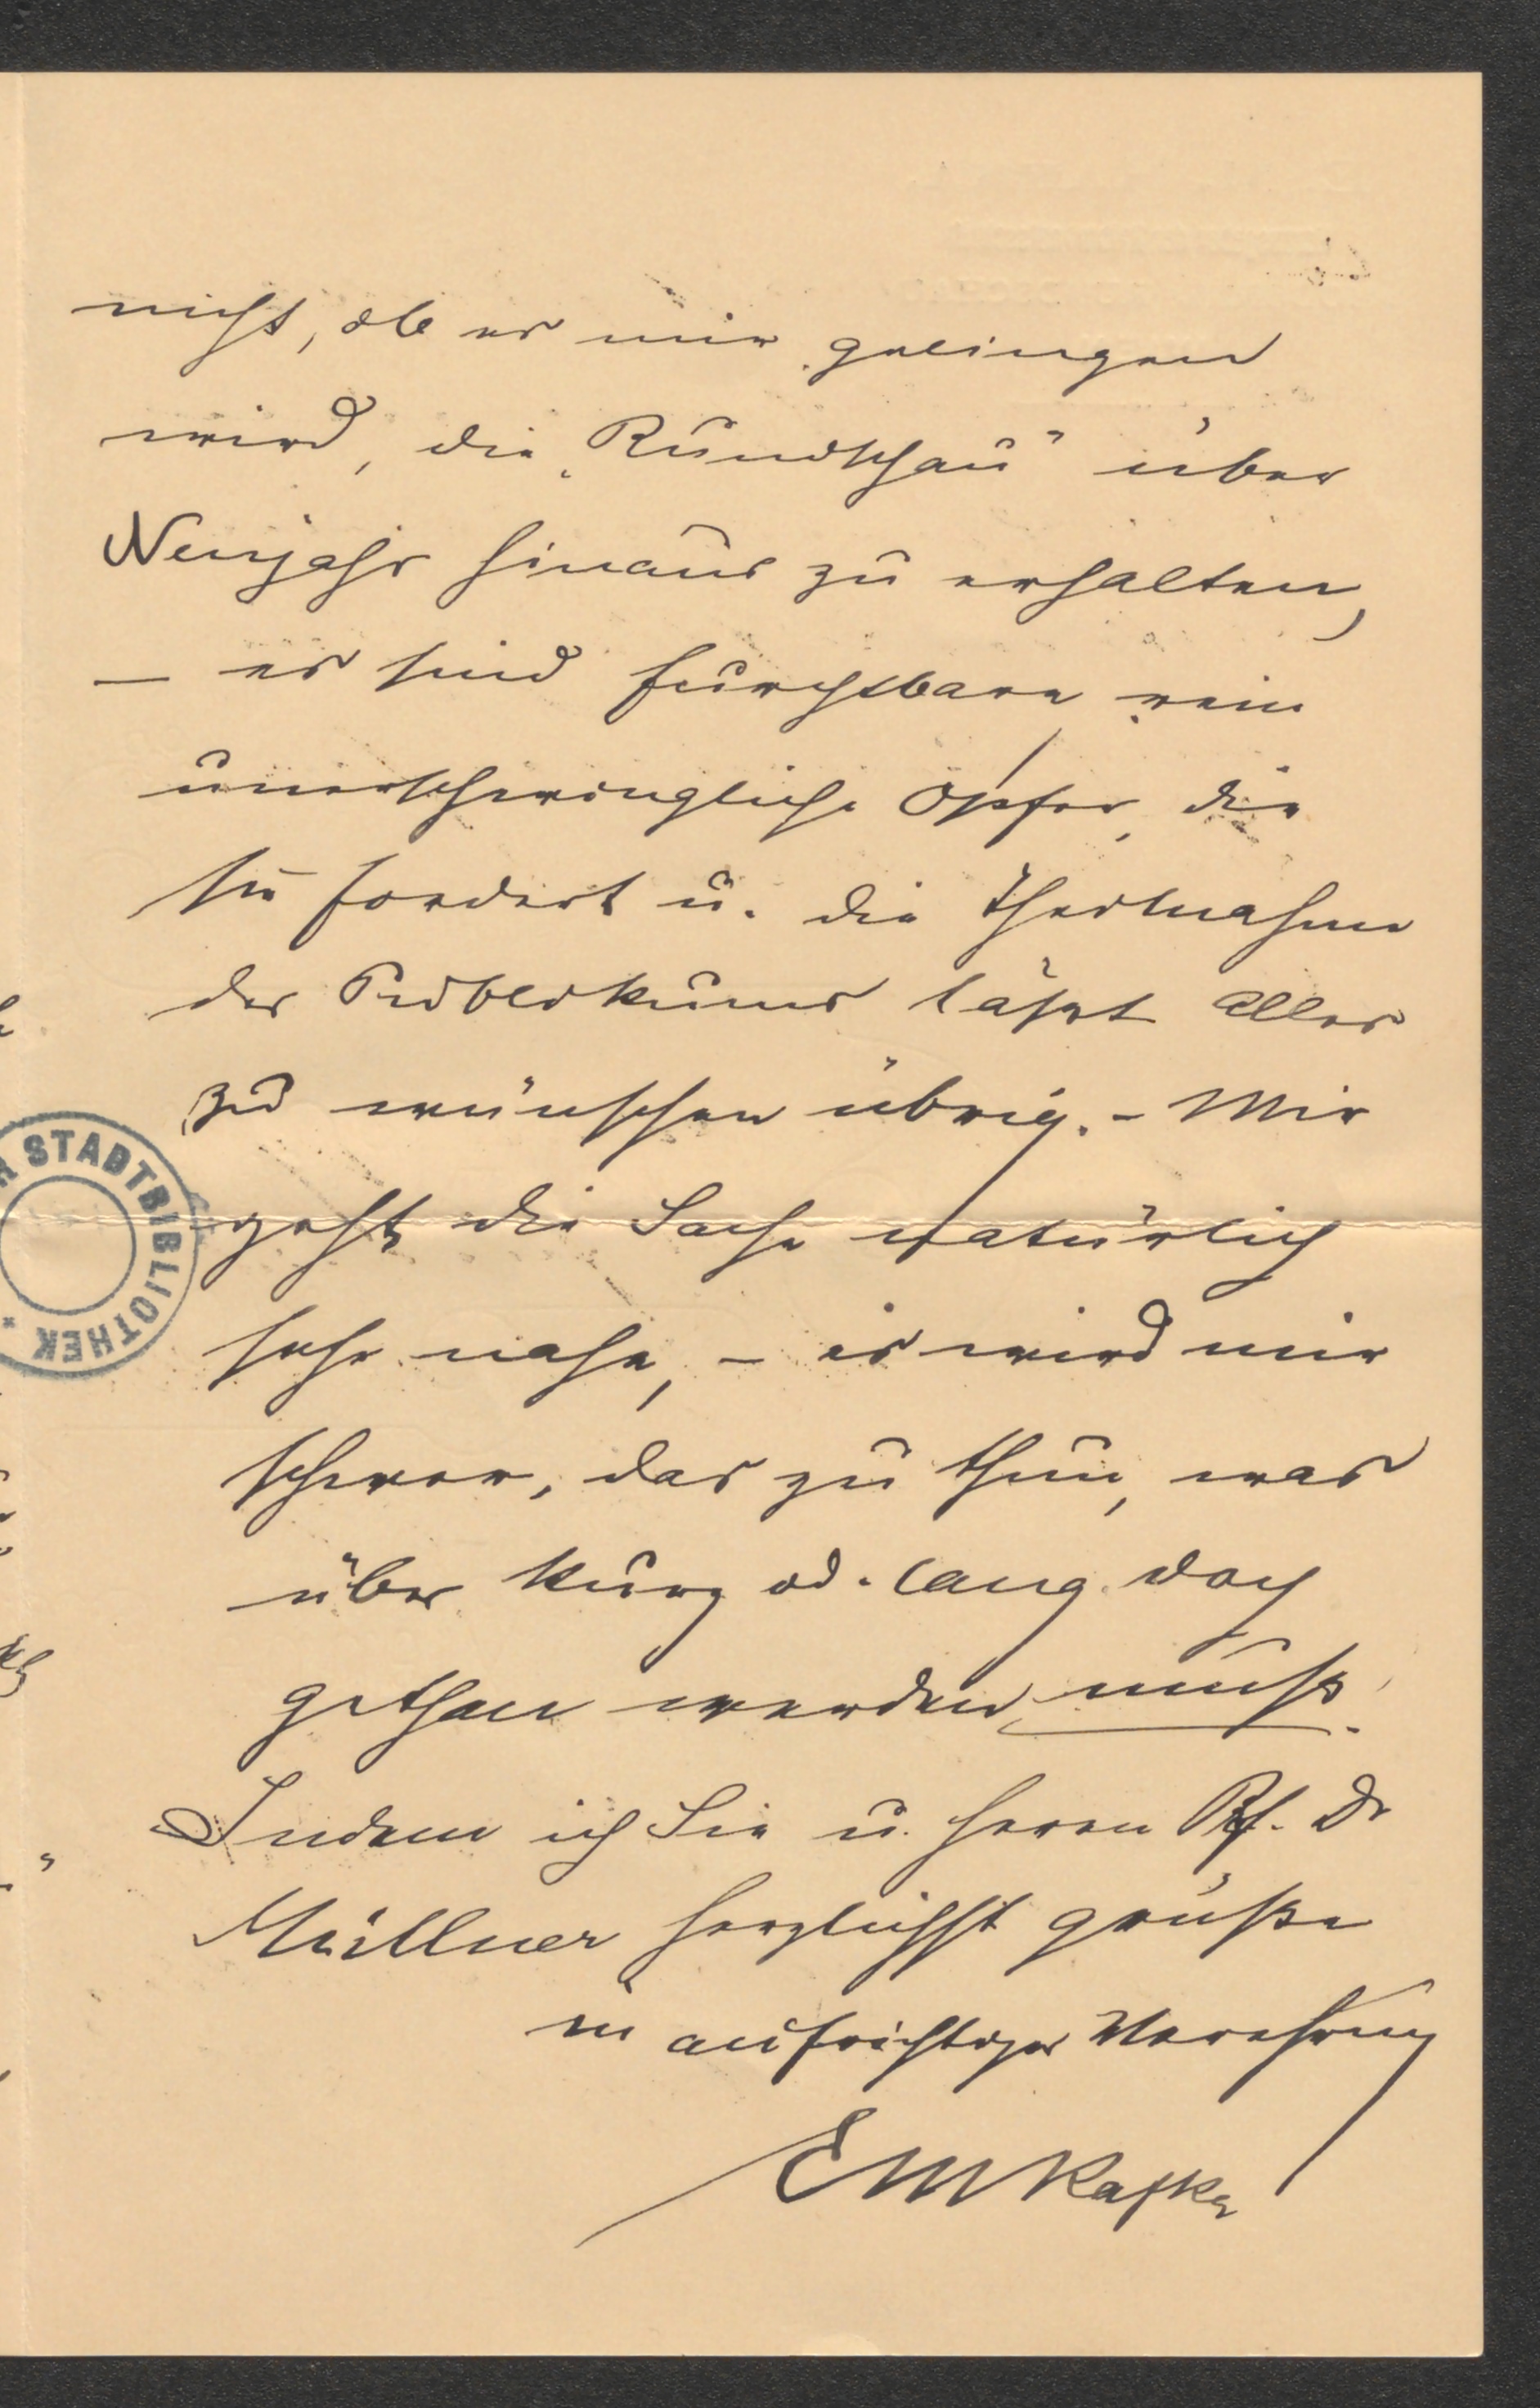 nicht, ob es mir gelingen
wird, die „Rundschau" über
Neujahr hinaus zu erhalten,
– es sind furchtbare rein
unerschwingliche Opfer, die
sie fordert u. die Theilnahme
des Publikums läßt alles
zu wünschen übrig. – Mir
geht die Sache natürlich
sehr nahe, – es wird mir
schwer, das zu thun, was
über kurz od. lang doch
gethan werden muß.
Indem ich Sie u. Herrn Pf. Dr
Müllner herzlichst grüße
in aufrichtiger Verehrung
EMKafka
STADTBIBLIOTHEK *